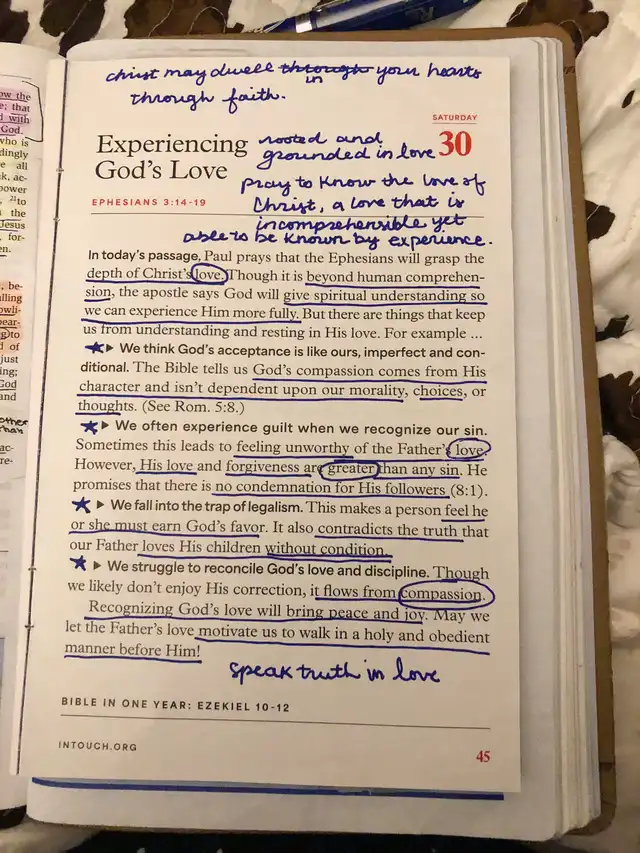 christ may dwell through your hearts
in
through faith.
SATURDAY
30
Experiencing
God's Love
rooted and
grounded in love
EPHESIANS 3:14-19
pray to know the love of
Christ, a love that is
incomprehensible yet
able to be known by experience.
In today's passage, Paul prays that the Ephesians will grasp the
depth of Christ's love. Though it is beyond human comprehen-
sion, the apostle says God will give spiritual understanding so
we can experience Him more fully. But there are things that keep
us from understanding and resting in His love. For example ...
★▶ We think God's acceptance is like ours, imperfect and con-
ditional. The Bible tells us God's compassion comes from His
character and isn't dependent upon our morality, choices, or
thoughts. (See Rom. 5:8.)
★▶ We often experience guilt when we recognize our sin.
Sometimes this leads to feeling unworthy of the Father's love.
However, His love and forgiveness are greater than any sin. He
promises that there is no condemnation for His followers (8:1).
★ ▶ We fall into the trap of legalism. This makes a person feel he
or she must earn God's favor. It also contradicts the truth that
our Father loves His children without condition.
★ ▶ We struggle to reconcile God's love and discipline. Though
we likely don't enjoy His correction, it flows from compassion.
Recognizing God's love will bring peace and joy. May we
let the Father's love motivate us to walk in a holy and obedient
manner before Him!
speak truth in love
BIBLE IN ONE YEAR: EZEKIEL 10-12
INTOUCH.ORG
45
ow the
e; that
d with
God.
who is
dingly
e all
k, ac-
power
21to
n the
Jesus
, for-
en.
, be-
alling
owli-
bear-
to
d of
just
ing;
God
and
other
than
ac-
re-